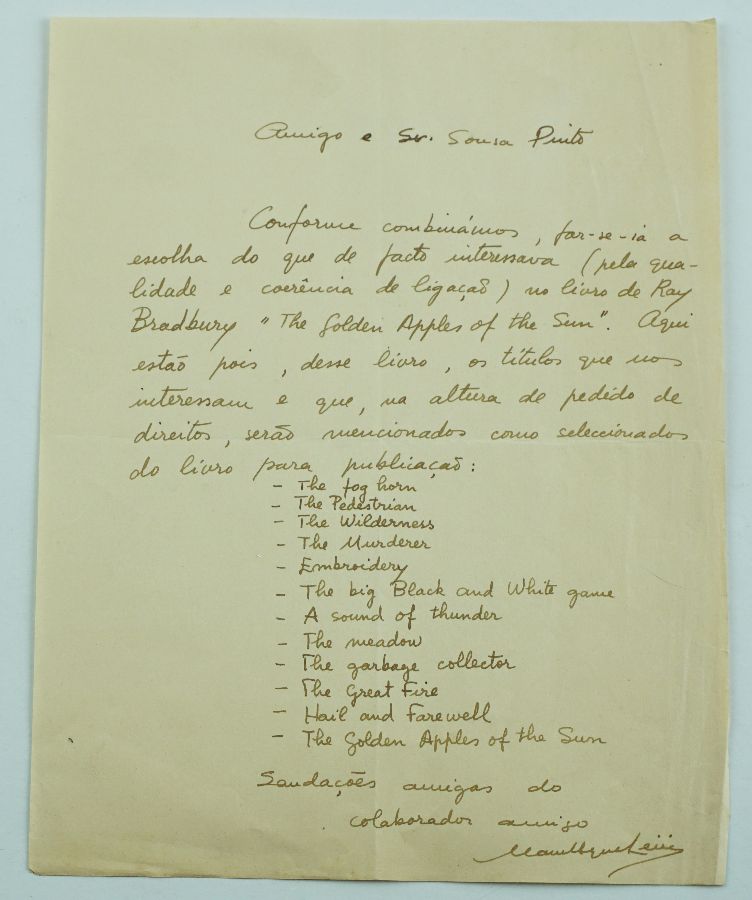 Amigo e Sr. Sousa Pinto
Conforme combinámos, far-se-ia a
escolha do que de facto interessava (pela qua-
lidade e coerência de ligação) no livro de Ray
Bradbury "The Golden Apples of the Sun". Aqui
estão pois, desse livro, os títulos que nos
interessam e que, na altura de pedido de
direitos, serão mencionados como seleccionados
do livro para publicação:
- The fog horn
- The Pedestrian
- The Wilderness
- The Murderer
- Embroidery
- The big Black and White game
- A sound of thunder
- The meadow
- The garbage collector
- The Great Fire
- Hail and Farewell
- The Golden Apples of the Sun
Saudações amigas do
colaborador amigo